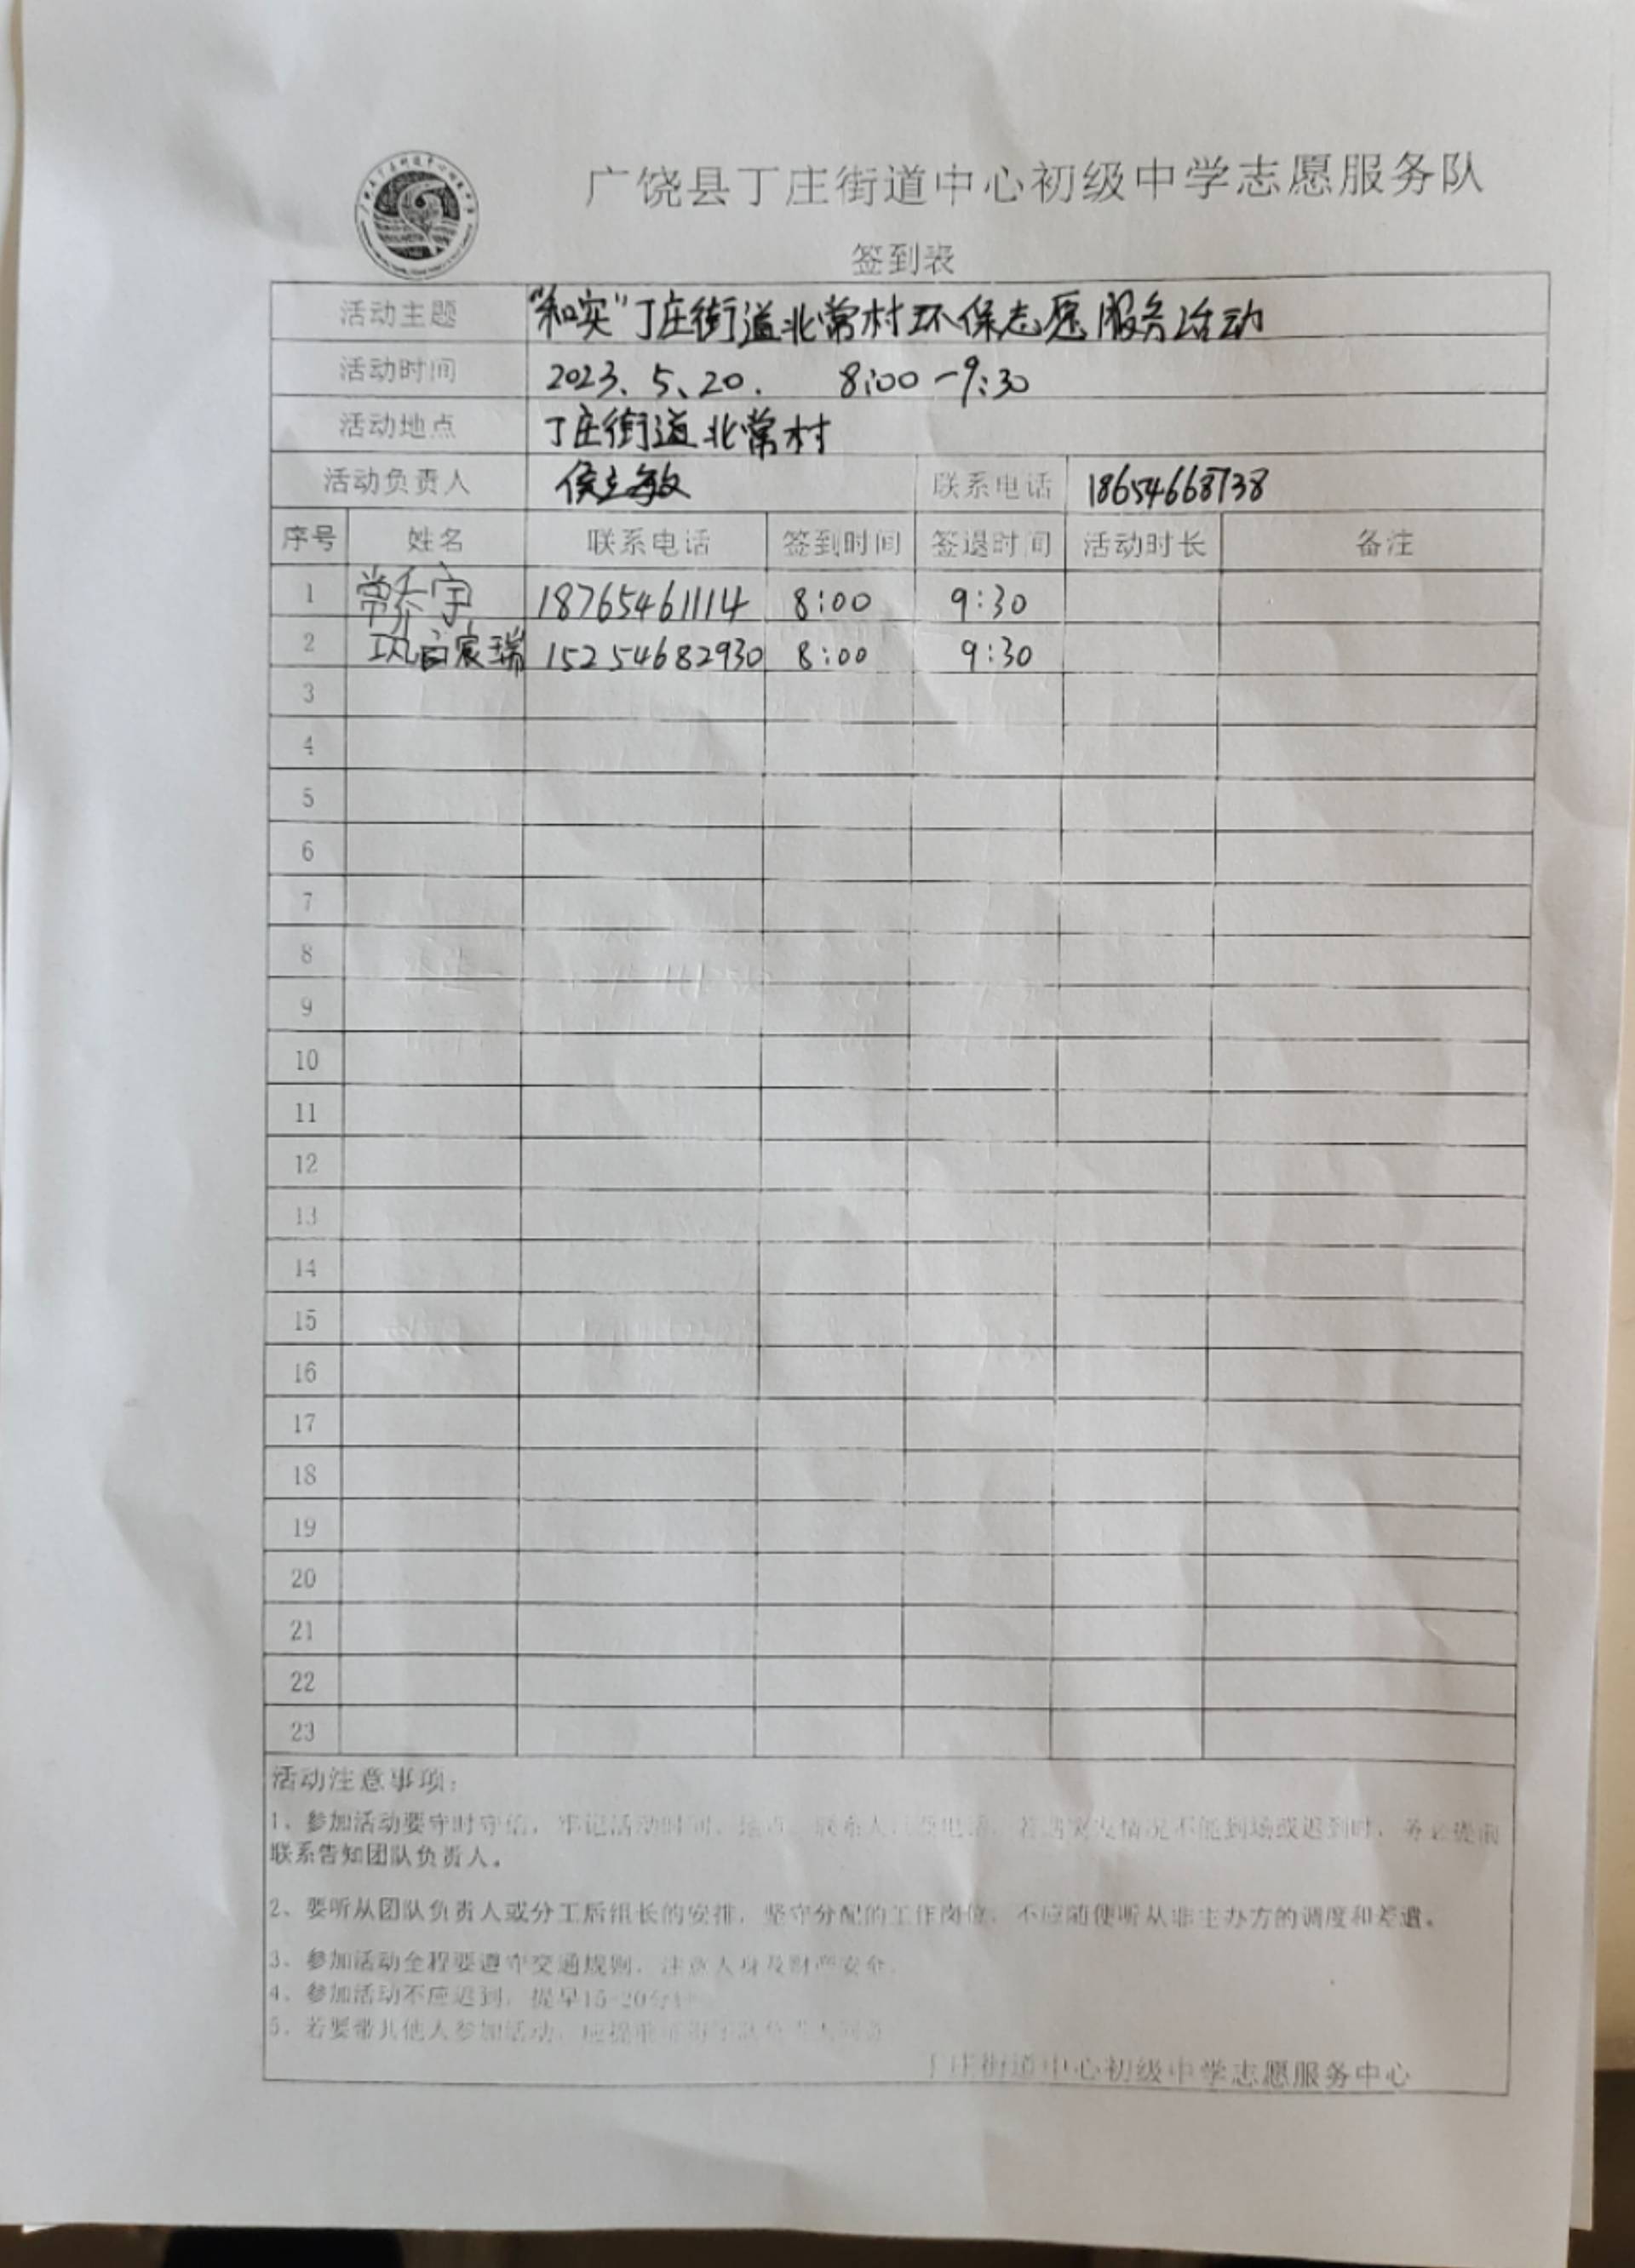 广饶县丁庄街道中心初级中学志愿服务队
签到表
活动主题 “和实”丁庄街道北常村环保志愿服务活动
活动时间 2023.5.20. 8:00-9:30
活动地点 丁庄街道北常村
活动负责人 侯立敏 联系电话 18654668738
序号 姓名 联系电话 签到时间 签退时间 活动时长 备注
1 常乔宇 18765461114 8:00 9:30
2 宸瑞 15254682930 8:00 9:30
3
4
5
6
7
8
9
10
11
12
13
14
15
16
17
18
19
20
21
22
23
活动注意事项:
1、参加活动要守时守信,牢记活动时间、地点、联系人及电话,若遇突发情况不能到场或迟到时,务必提前
联系告知团队负责人。
2、要听从团队负责人或分工后组长的安排,坚守分配的工作岗位,不应随便听从非主办方的调度和差遣。
3、参加活动全程要遵守交通规则,注意人身及财产安全。
4、参加活动不应迟到,提早15-20分钟
5、若要带其他人参加活动,应提
丁庄街道中心初级中学志愿服务中心